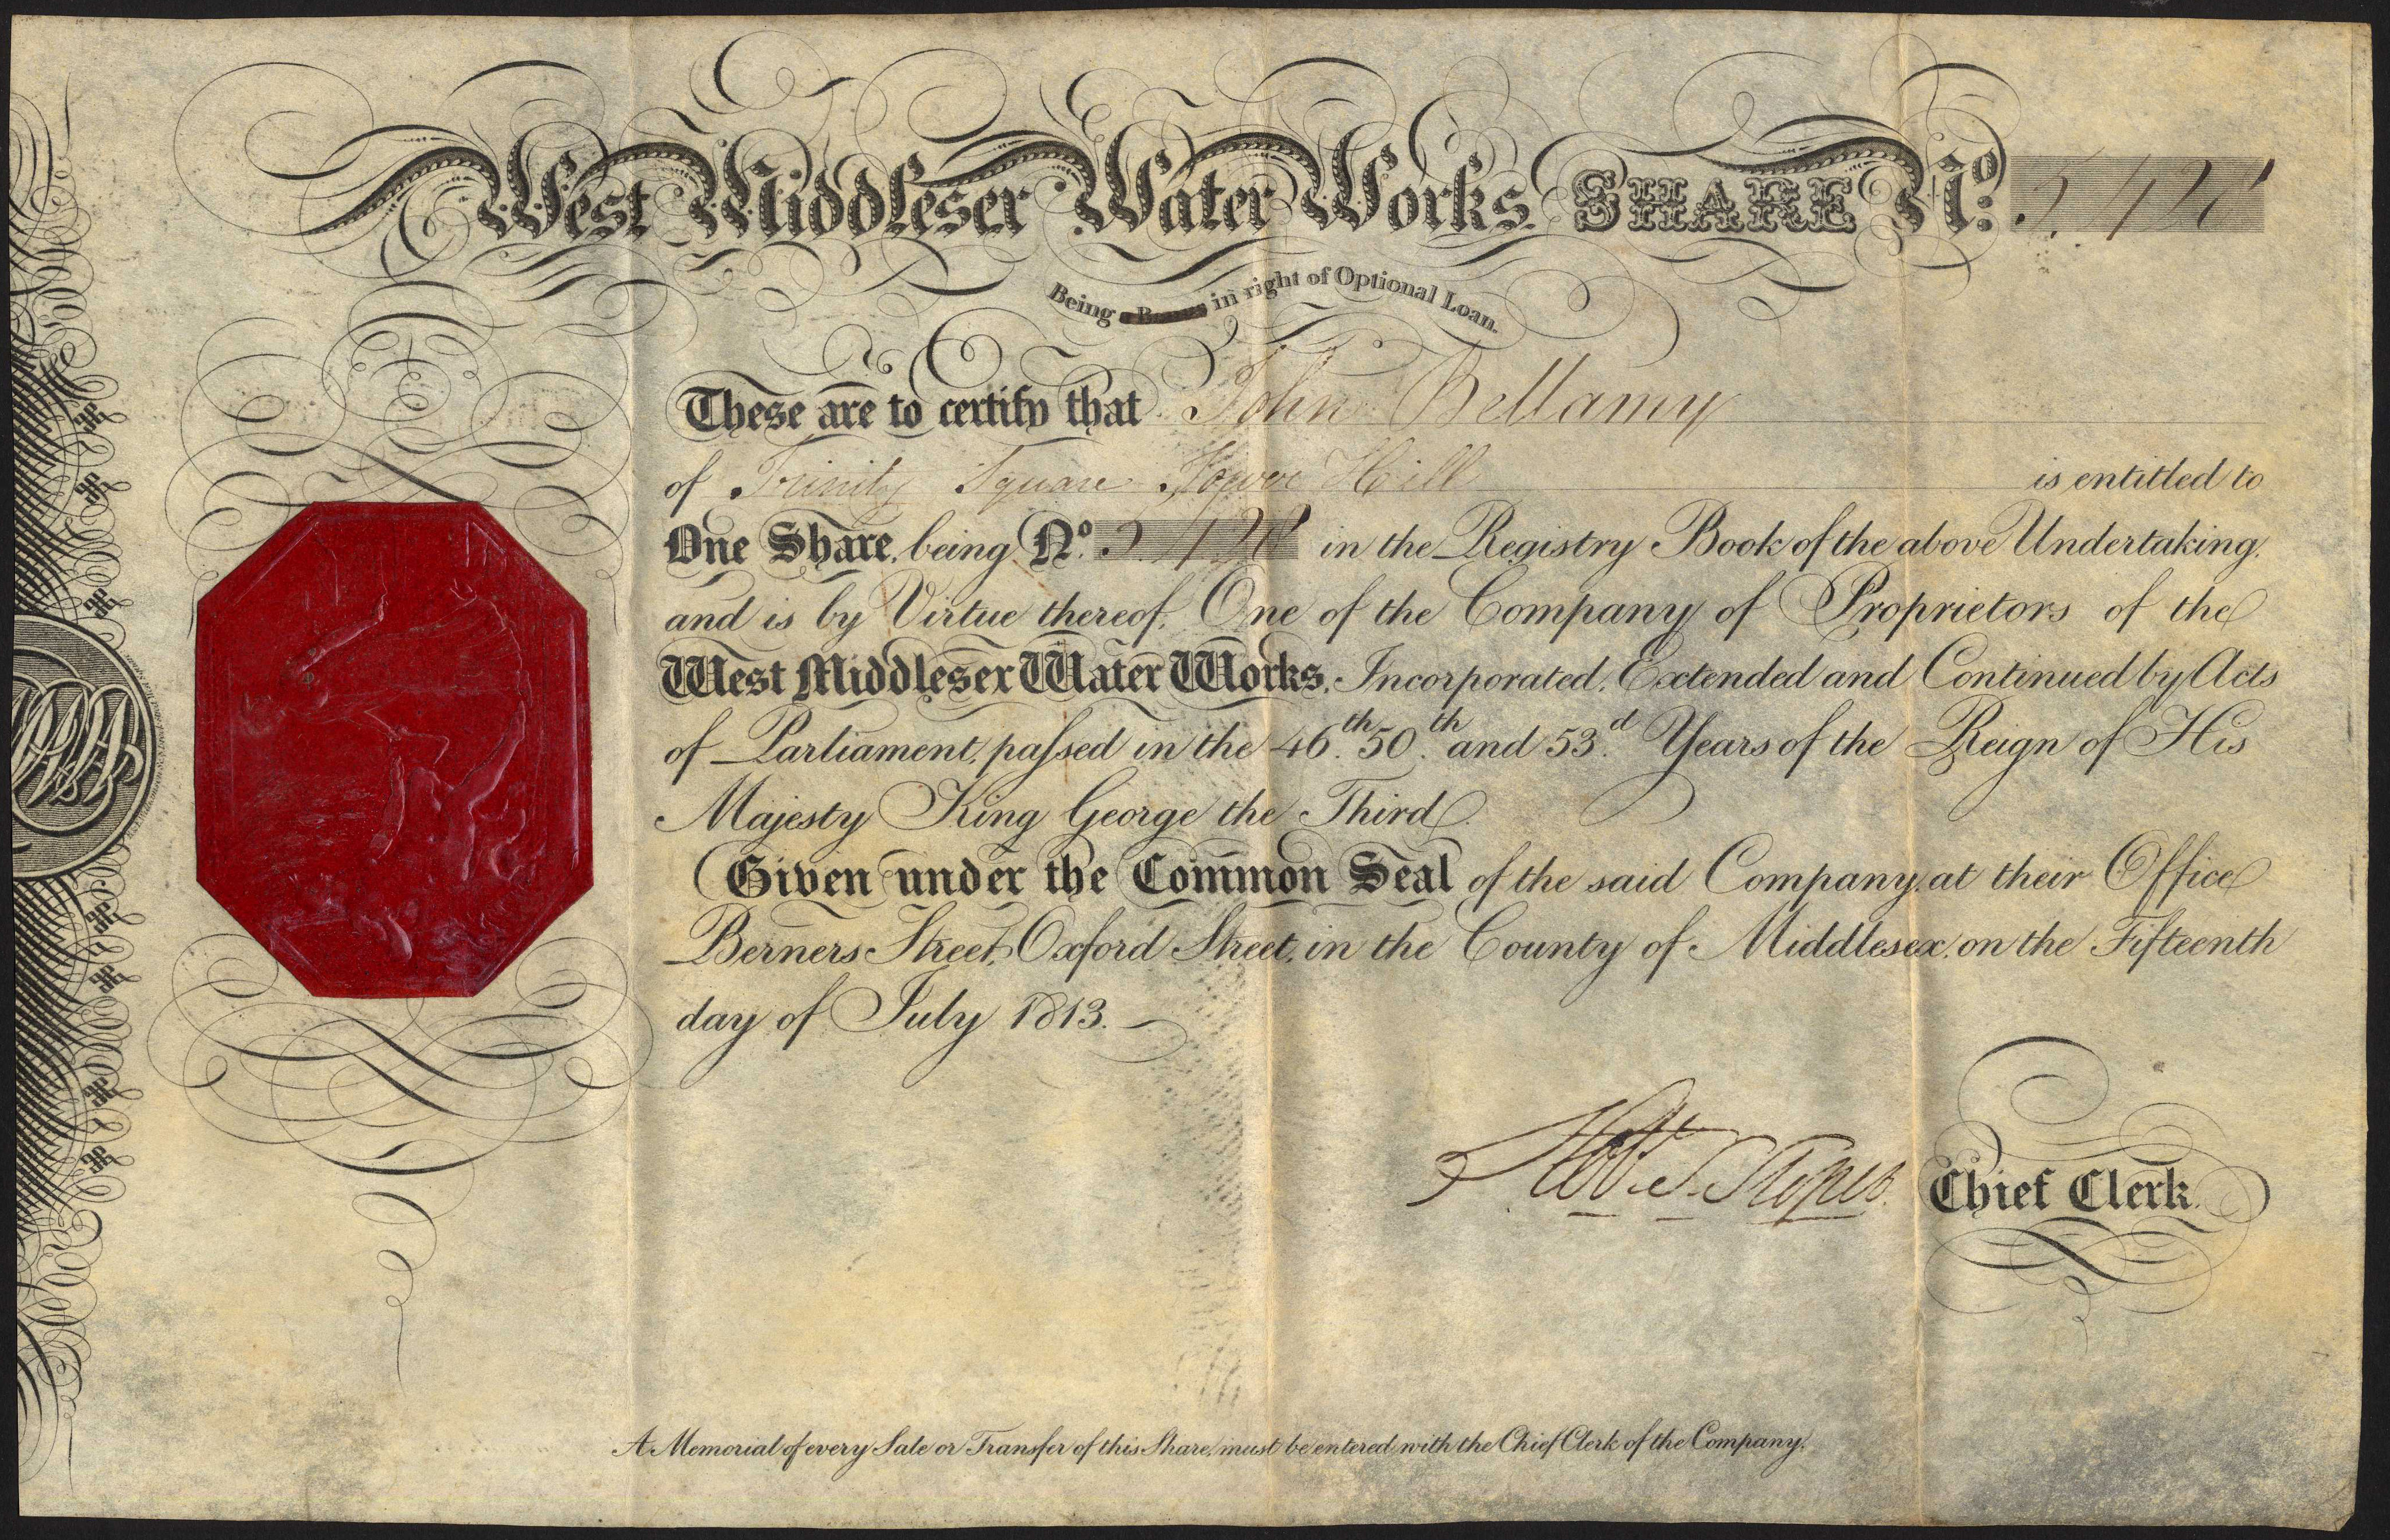 West Middlesex Water Works. SHARE No: 5,428
Being in right of Optional Loan.
These are to certify that John Bellamy
of Trinity Square Tower Hill is entitled to
One Share, being No. 5,428 in the Registry Book of the above Undertaking,
and is by Virtue thereof, One of the Company of Proprietors of the
West Middlesex Water Works, Incorporated, Extended and Continued by Acts
of Parliament, paſsed in the 46th. 50th. and 53d. Years of the Reign of His
Majesty King George the Third.
Given under the Common Seal of the said Company, at their Office
Berners Street, Oxford Street, in the County of Middlesex, on the Fifteenth
day of July 1813.
Chief Clerk.
A Memorial of every Sale or Transfer of this Share, must be entered with the Chief Clerk of the Company.